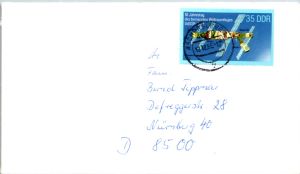 10. Jahrestag
des bemannten Weltraumfluges
35 DDR
An
Bernd Teppner
Defreggerstr 28
Nürnberg 40
D 8500